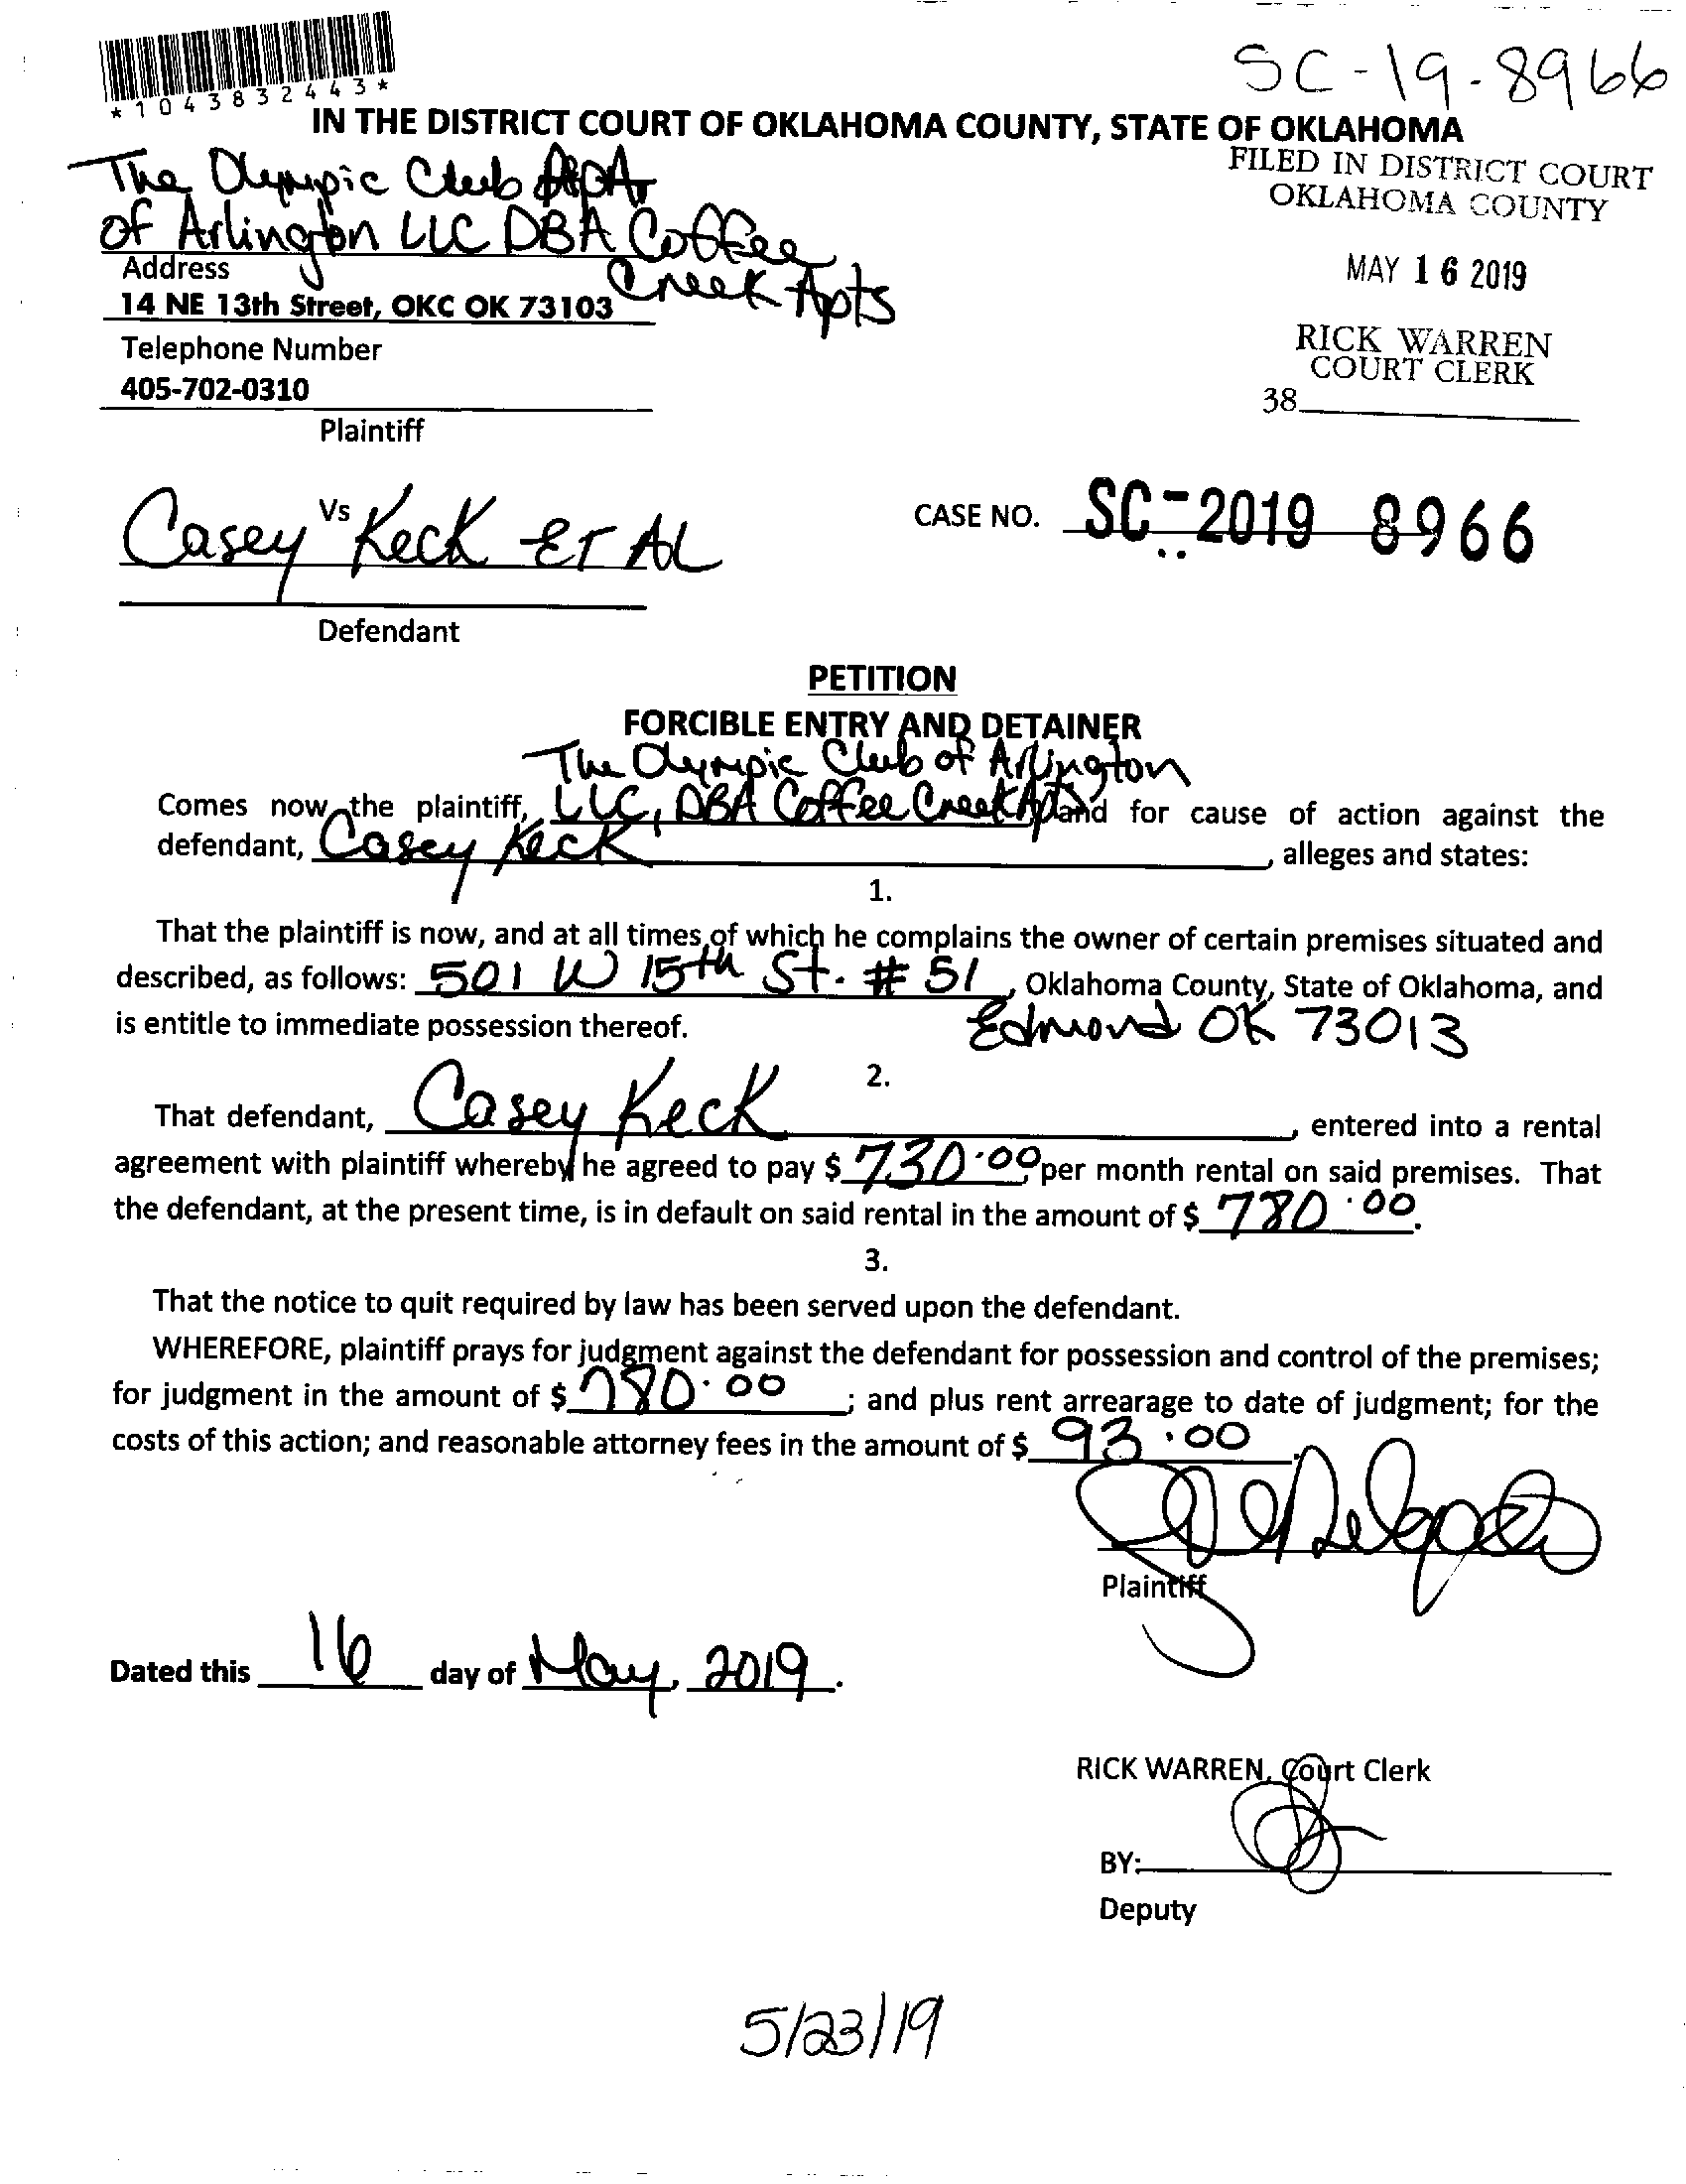 SC-19-8966
*1043832443*
IN THE DISTRICT COURT OF OKLAHOMA COUNTY, STATE OF OKLAHOMA
FILED IN DISTRICT COURT
OKLAHOMA COUNTY
MAY 16 2019
RICK WARREN
COURT CLERK
38
The Olympic Club
of Arlington LLC DBA Coffee
Creek Apts
Address
14 NE 13th Street, OKC OK 73103
Telephone Number
405-702-0310
Plaintiff
Vs
Casey Keck ET AL
Defendant
CASE NO. SC-2019 8966
PETITION
FORCIBLE ENTRY AND DETAINER
The Olympic Club of Arlington
Comes now the plaintiff, LLC, DBA Coffee Creek Apts and for cause of action against the
defendant, Casey Keck, alleges and states:
1.
That the plaintiff is now, and at all times of which he complains the owner of certain premises situated and
described, as follows: 501 W 15th St. # 51, Oklahoma County, State of Oklahoma, and
is entitle to immediate possession thereof. Edmond OK 73013
2.
That defendant, Casey Keck, entered into a rental
agreement with plaintiff whereby he agreed to pay $ 730.00 per month rental on said premises. That
the defendant, at the present time, is in default on said rental in the amount of $ 780.00.
3.
That the notice to quit required by law has been served upon the defendant.
WHEREFORE, plaintiff prays for judgment against the defendant for possession and control of the premises;
for judgment in the amount of $ 780.00; and plus rent arrearage to date of judgment; for the
costs of this action; and reasonable attorney fees in the amount of $ 93.00.
Plaintiff
Dated this 16 day of May, 2019.
RICK WARREN, Court Clerk
BY:
Deputy
5/23/19